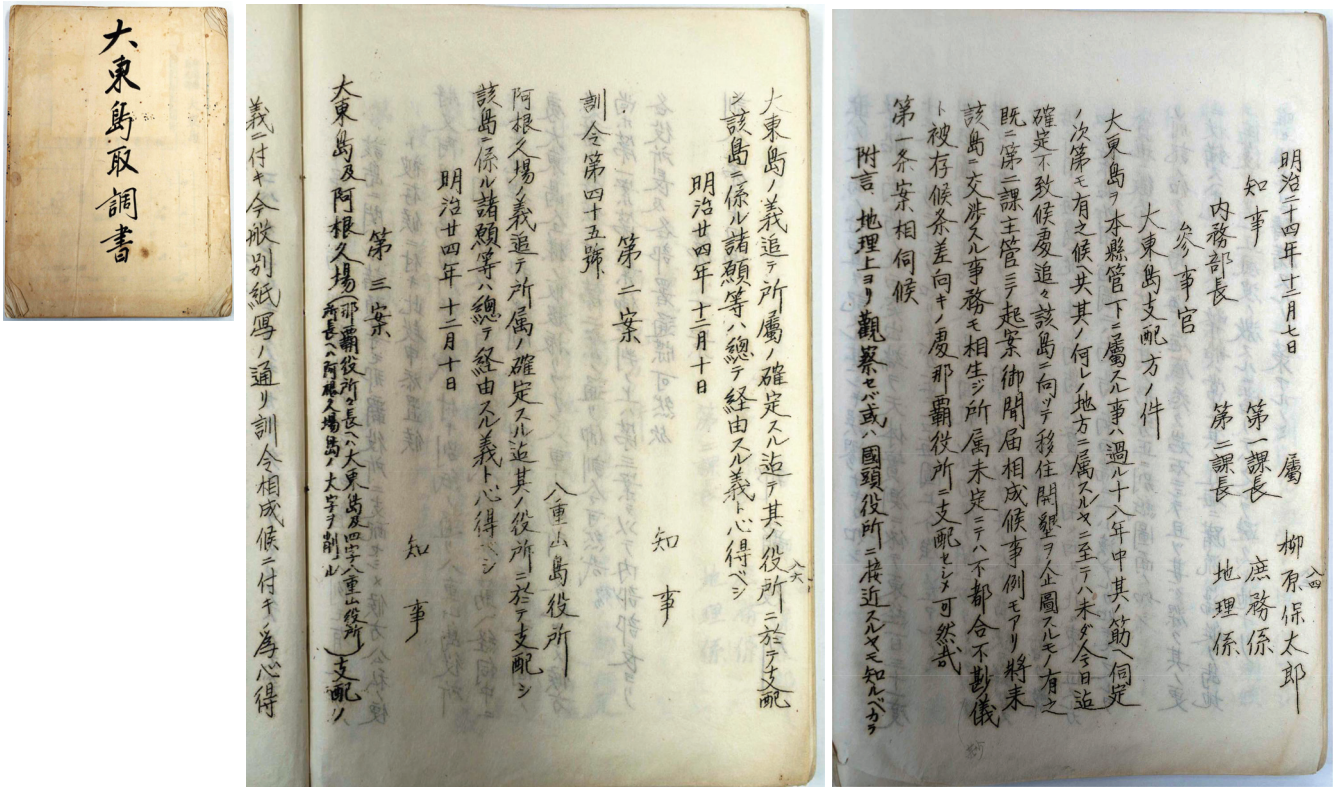 大東島取調書
明治二十四年十二月七日　屬　柳原保太郎
知事　第一課長　庶務係
内務部長　第二課長　地理係
参事官
大東島支配方ノ件
大東島ヲ本縣管下ニ屬スル事ハ過ル十八年中其ノ筋ヘ伺定
ノ次第モ有之候ヘ共其ノ何レノ地方ニ属スルヤニ至テハ未タ今日迠
確定不致候處追々該島ニ向ッテ移住開墾ヲ企圖スルモノ有之
既ニ第二課主管ニテ起案御聞届相成候事例モアリ將来
該島ニ交渉スル事務モ相生ジ所属未定ニテハ不都合不尠儀
ト被存候条差向キノ處那覇役所ニ支配セシメ可然哉
第一条案相伺候
附言、地理上ヨリ觀察セバ或ハ國頭役所ニ接近スルヤモ知ルベカラ
大東島ノ義追テ所屬ノ確定スル迠テ其ノ役所ニ於テ支配
シ該島ニ係ル諸願等ハ總テ経由スル義ト心得ベシ
明治廿四年十二月十日　知事
第二案
訓令第四十五號　八重山島役所
阿根久場ノ義追テ所属ノ確定スル迠其ノ役所ニ於テ支配シ
該島ニ係ル諸願等ハ總テ経由スル義ト心得ベシ
明治廿四年十二月十日　知事
第三案
大東島及阿根久場(那覇役所々長ヘハ大東島及四字八重山役所
所長ヘハ阿根久場島ノ大字ヲ削ル)支配ノ
義ニ付キ今般別紙冩ノ通リ訓令相成候ニ付キ為心得